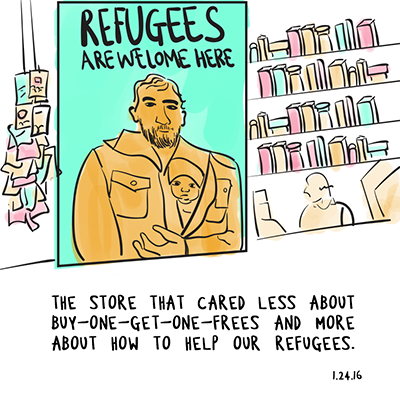 REFUGEES
ARE WELOME HERE
THE STORE THAT CARED LESS ABOUT
BUY-ONE-GET-ONE-FREES AND MORE
ABOUT HOW TO HELP OUR REFUGEES.
1.24.16